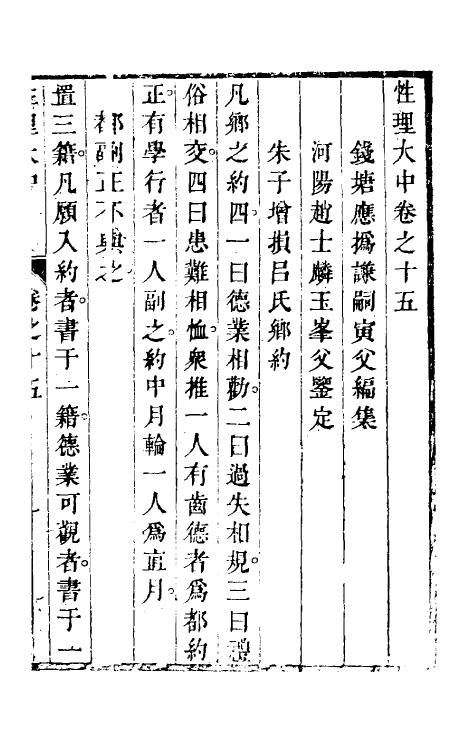 性理大中卷之十五
錢塘應撝謙嗣寅父編集
河陽趙士麟玉峯父鑒定
朱子增損呂氏鄉約
凡鄉之約四一曰德業相勸二曰過失相規三曰禮
俗相交四曰患難相恤衆推一人有齒德者為都約
正有學行者一人副之約中月輪一人為直月
都副正不與之
置三籍凡願入約者書于一籍德業可觀者書于一
性理大中 卷之十五